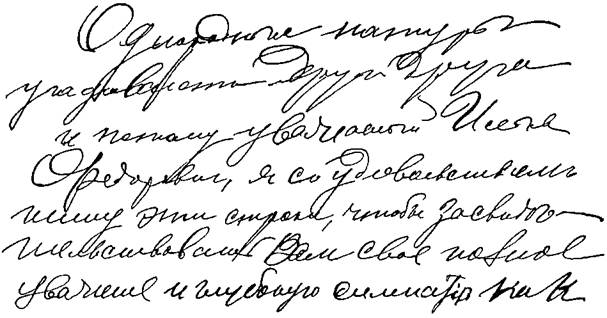 Однородные натуры
угадывают друг друга
и потому уважаемый Илья
Федорович, я со удовольствием
пишу эти строки, чтобы засвиде-
тельствовать Вам свое полное
уважение и глубокую симпатiю как